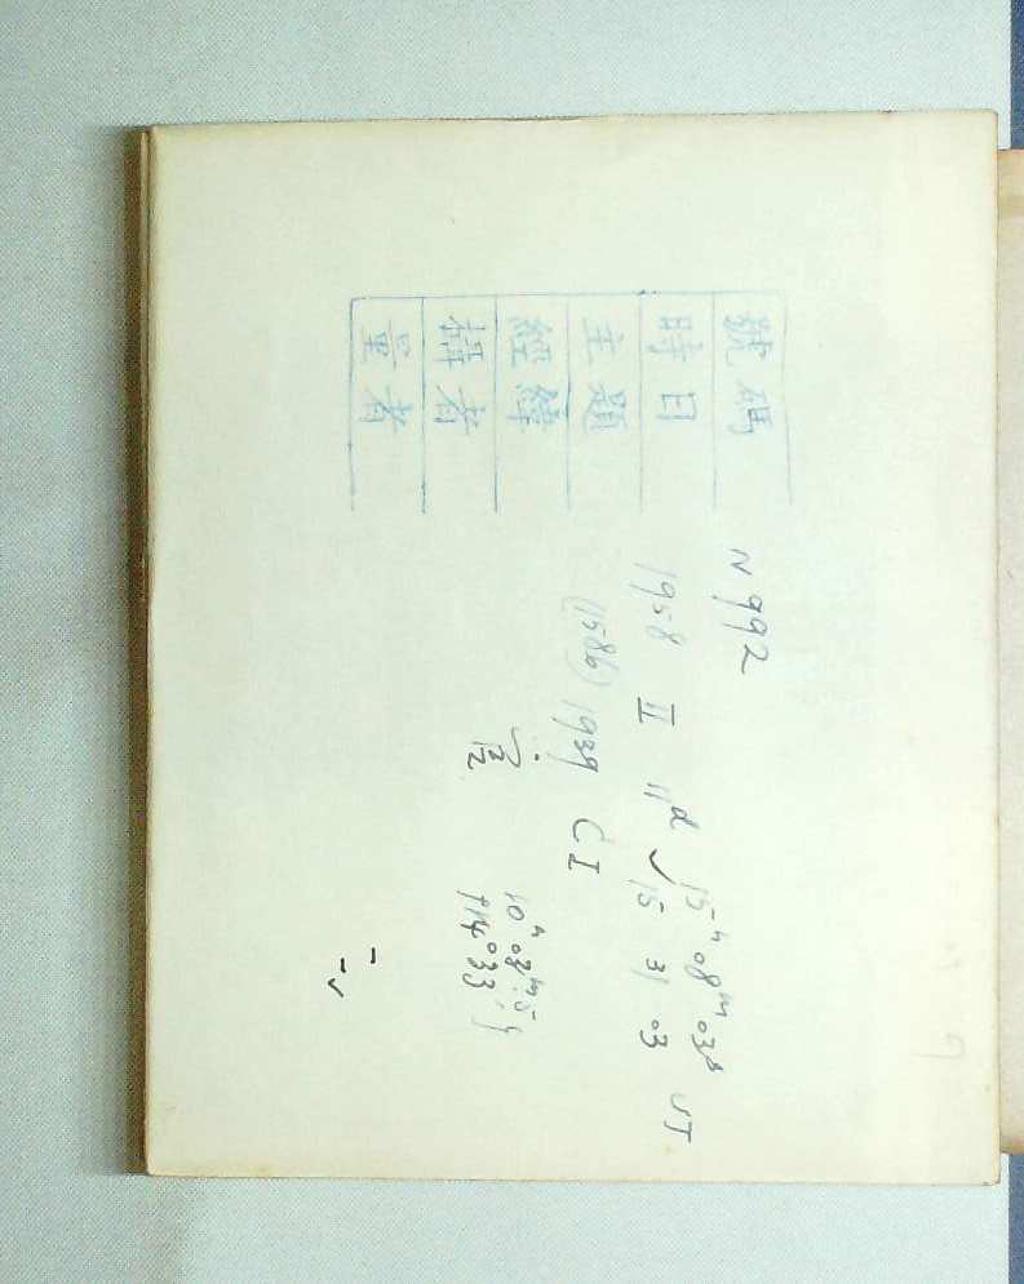 號碼 N 992
時日 1958 II 11d 15h 08m 03s UT
15 31 03
主題 (1586) 1939 CJ
經緯 10h 08m.5
+14°33'
攝者
量者